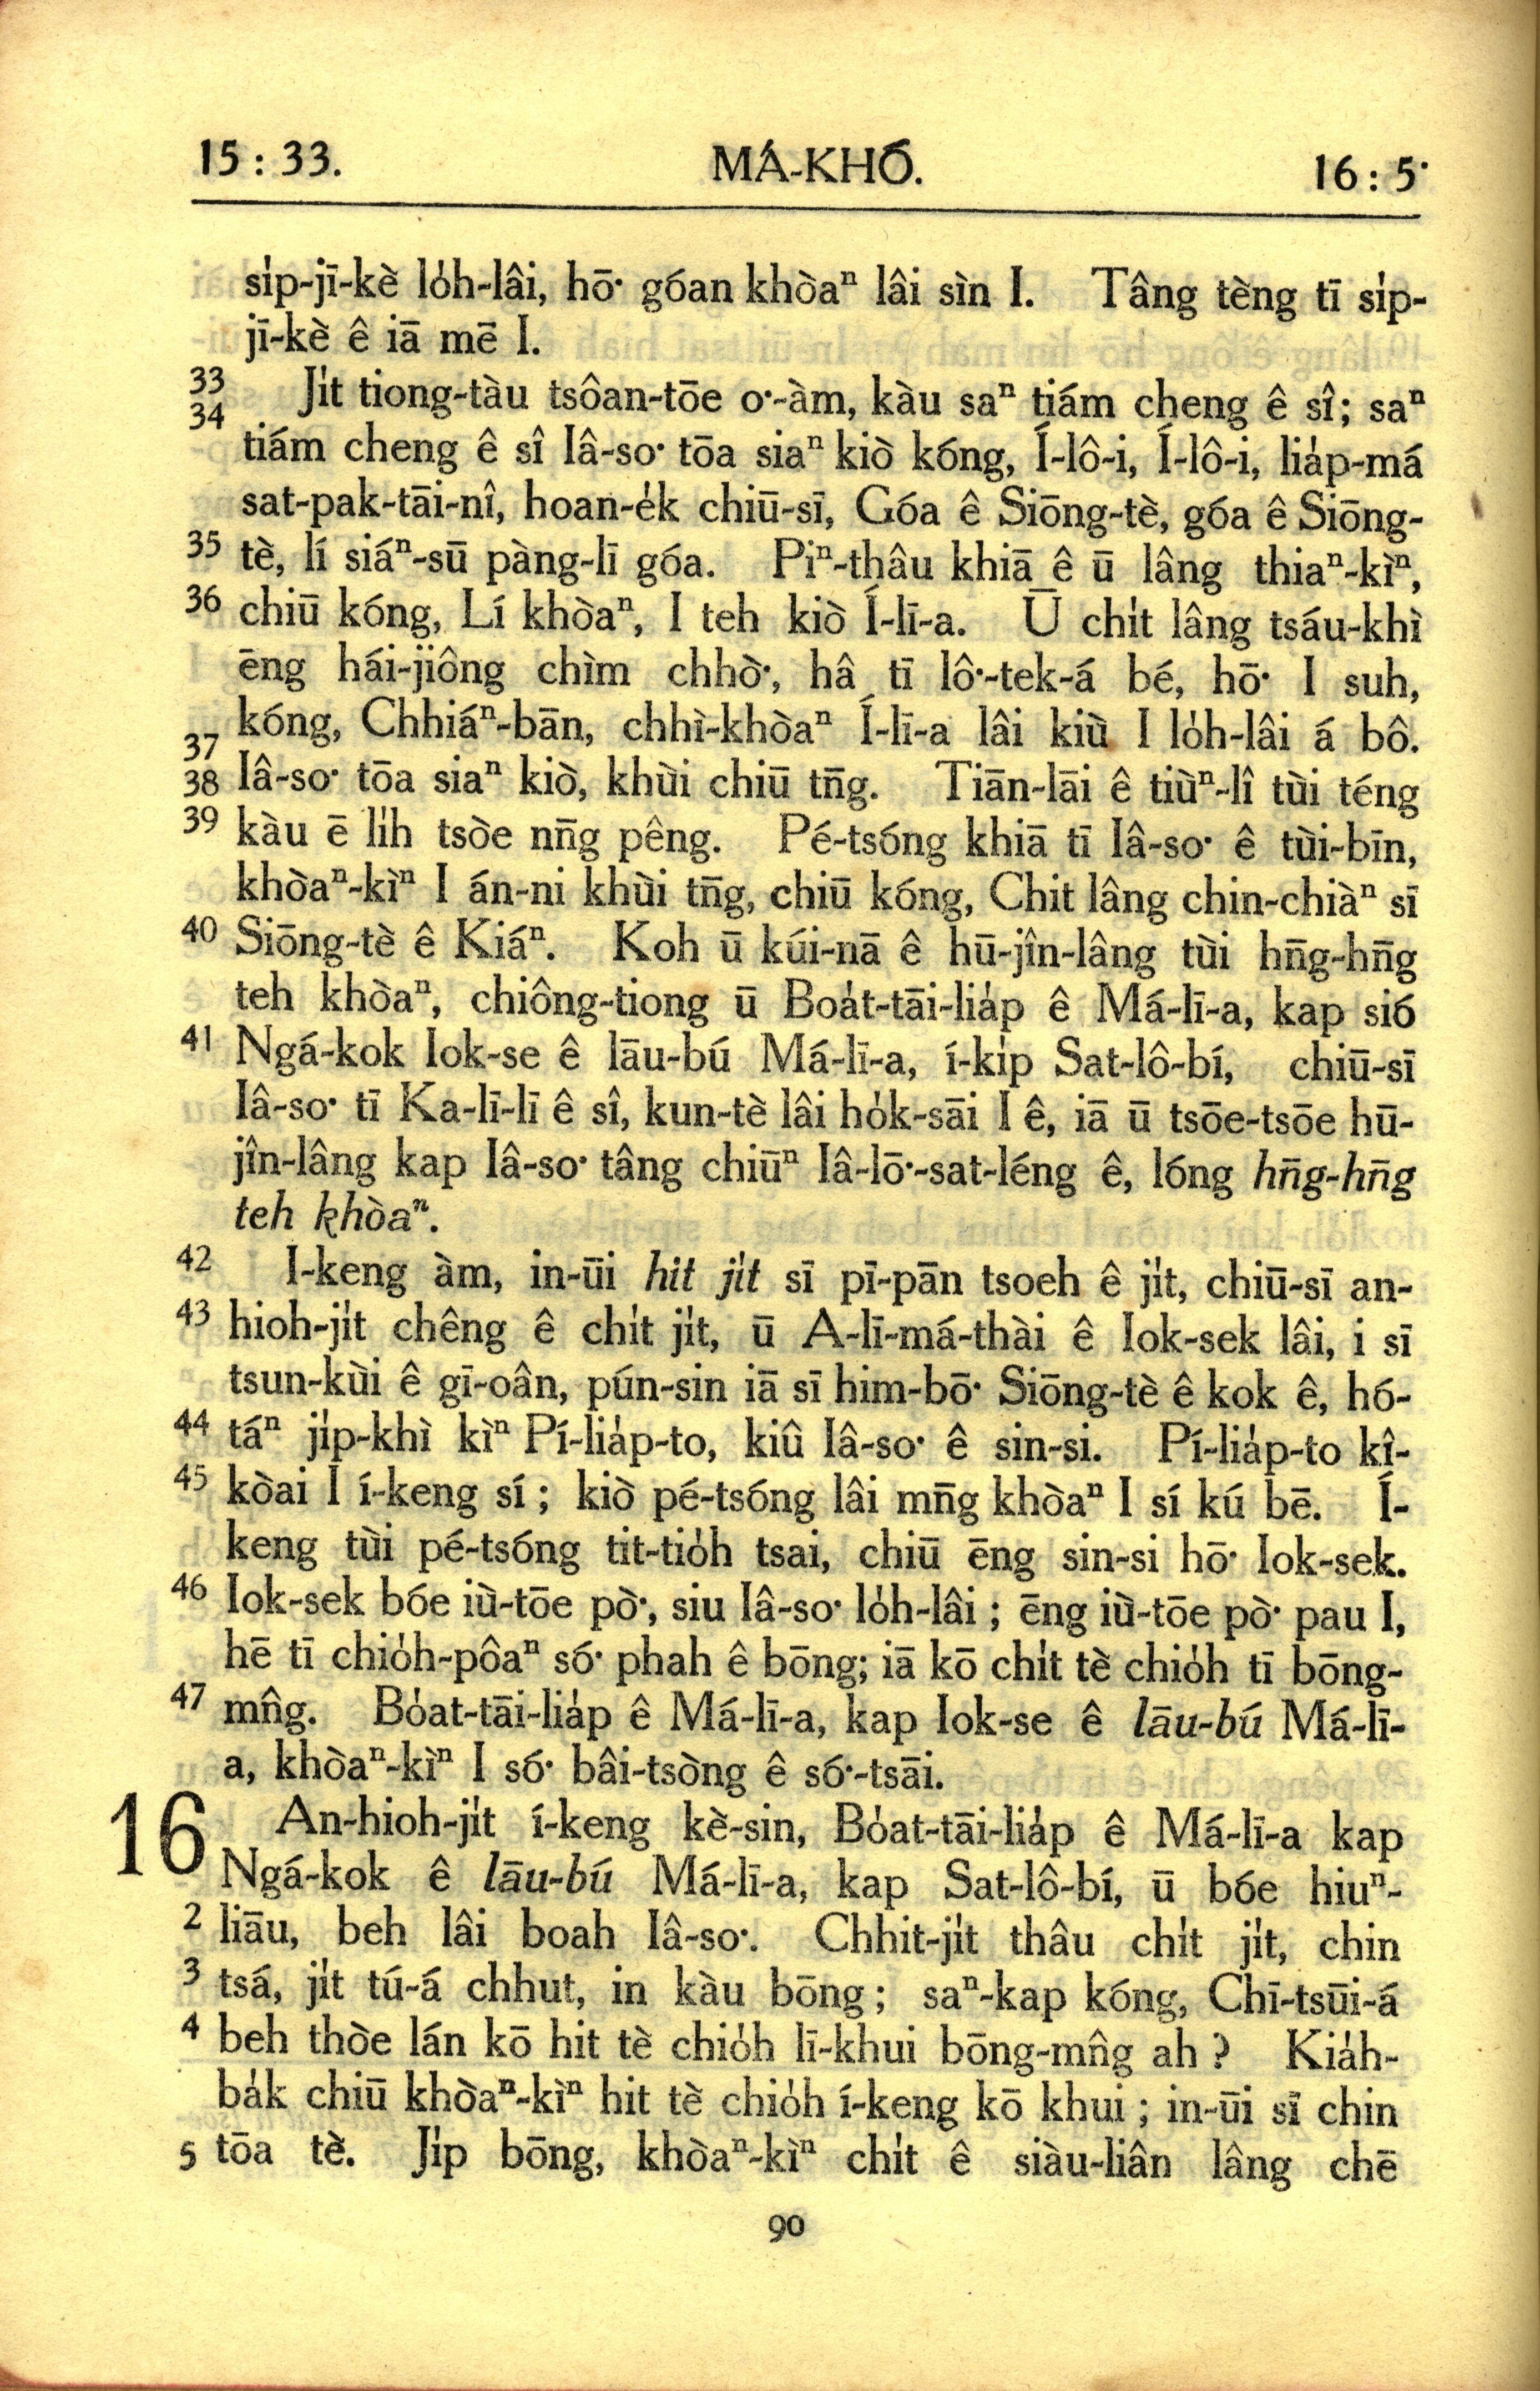 15 : 33. MÁ-KHÓ. 16 : 5·
si̍p-jī-kè lo̍h-lâi, hō͘ góan khòaⁿ lâi sìn I. Tâng tèng tī si̍p-
jī-kè ê iā mē I.
33 Ji̍t tiong-tàu tsôan-tōe o͘-àm, kàu saⁿ tiám cheng ê sî; saⁿ
34 tiám cheng ê sî Iâ-so͘ tōa siaⁿ kiò kóng, Í-lô-i, Í-lô-i, lia̍p-má
sat-pak-tāi-nî, hoan-e̍k chiū-sī, Góa ê Siōng-tè, góa ê Siōng-
35 tè, lí siáⁿ-sū pàng-lī góa. Piⁿ-thâu khiā ê ū lâng thiaⁿ-kìⁿ,
36 chiū kóng, Lí khòaⁿ, I teh kiò Í-lī-a. Ū chi̍t lâng tsáu-khì
ēng hái-jiông chìm chhò͘, hâ tī lô͘-tek-á bé, hō͘ I suh,
kóng, Chhiáⁿ-bān, chhì-khòaⁿ Í-lī-a lâi kiù I lo̍h-lâi á bô.
37
38 Iâ-so͘ tōa siaⁿ kiò, khùi chiū tn̄g. Tiān-lāi ê tiùⁿ-lî tùi téng
39 kàu ē li̍h tsòe nn̄g pêng. Pé-tsóng khiā tī Iâ-so͘ ê tùi-bīn,
khòaⁿ-kìⁿ I án-ni khùi tn̄g, chiū kóng, Chit lâng chin-chiàⁿ sī
40 Siōng-tè ê Kiáⁿ. Koh ū kúi-nā ê hū-jîn-lâng tùi hn̄g-hn̄g
teh khòaⁿ, chiông-tiong ū Boa̍t-tāi-lia̍p ê Má-lī-a, kap sió
41 Ngá-kok Iok-se ê lāu-bú Má-lī-a, í-ki̍p Sat-lô-bí, chiū-sī
Iâ-so͘ tī Ka-lī-lī ê sî, kun-tè lâi ho̍k-sāi I ê, iā ū tsōe-tsōe hū-
jîn-lâng kap Iâ-so͘ tâng chiūⁿ Iâ-lō͘-sat-léng ê, lóng hn̄g-hn̄g
teh khòaⁿ.
42 I-keng àm, in-ūi hit ji̍t sī pī-pān tsoeh ê ji̍t, chiū-sī an-
43 hioh-ji̍t chêng ê chi̍t ji̍t, ū A-lī-má-thài ê Iok-sek lâi, i sī
tsun-kùi ê gī-oân, pún-sin iā sī him-bō͘ Siōng-tè ê kok ê, hó-
44 táⁿ ji̍p-khì kìⁿ Pí-lia̍p-to, kiû Iâ-so͘ ê sin-si. Pí-lia̍p-to kî-
45 kòai I í-keng sí ; kiò pé-tsóng lâi mn̄g khòaⁿ I sí kú bē. Í-
keng tùi pé-tsóng tit-tio̍h tsai, chiū ēng sin-si hō͘ Iok-sek.
46 Iok-sek bóe iù-tōe pò͘, siu Iâ-so͘ lo̍h-lâi ; ēng iù-tōe pò͘ pau I,
hē tī chio̍h-pôaⁿ só͘ phah ê bōng; iā kō chi̍t tè chio̍h tī bōng-
47 mn̂g. Bo̍at-tāi-lia̍p ê Má-lī-a, kap Iok-se ê lāu-bú Má-lī-
a, khòaⁿ-kìⁿ I só͘ bâi-tsòng ê só͘-tsāi.
16 An-hioh-ji̍t í-keng kè-sin, Bo̍at-tāi-lia̍p ê Má-lī-a kap
Ngá-kok ê lāu-bú Má-lī-a, kap Sat-lô-bí, ū bóe hiuⁿ-
2 liāu, beh lâi boah Iâ-so͘. Chhit-ji̍t thâu chi̍t ji̍t, chin
3 tsá, ji̍t tú-á chhut, in kàu bōng ; saⁿ-kap kóng, Chī-tsūi-á
4 beh thòe lán kō hit tè chio̍h lī-khui bōng-mn̂g ah ? Kia̍h-
ba̍k chiū khòaⁿ-kìⁿ hit tè chio̍h í-keng kō khui ; in-ūi sī chin
5 tōa tè. Ji̍p bōng, khòaⁿ-kìⁿ chi̍t ê siàu-liân lâng chē
90